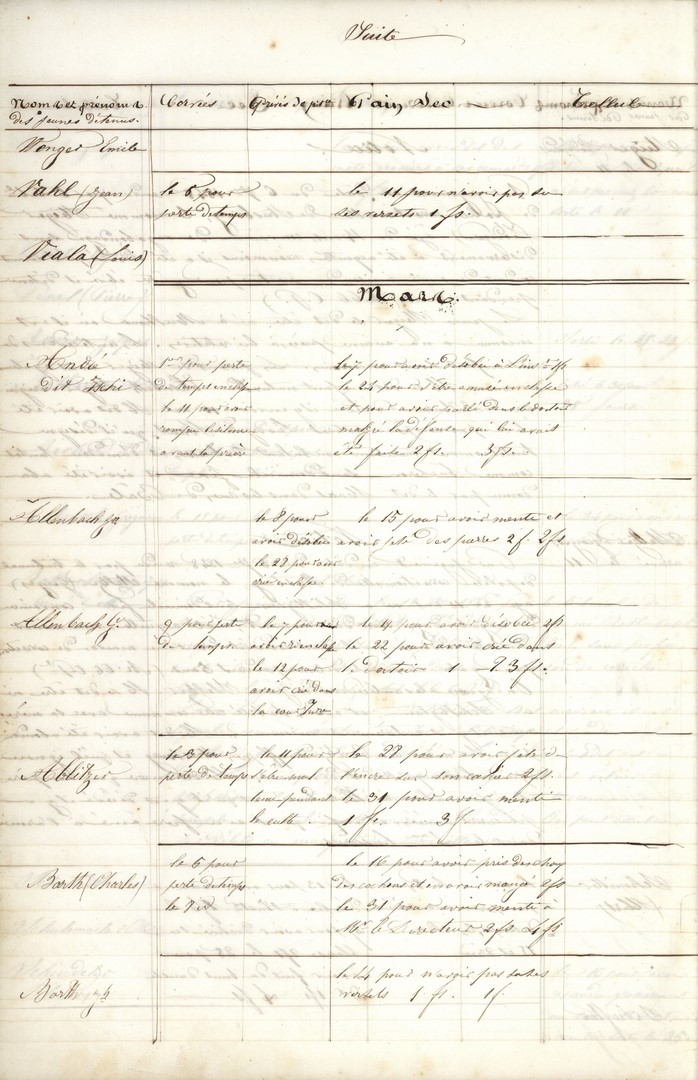 Suite
Noms et prénoms
des jeunes détenus.
Corvées
Privés de
Pain Sec
Cellule
Wenger Emile
Vahl (Jean)
le 5 pour
perte de temps
le 11 pour n'avoir pas su
ses versets 1 fs.
Viala (Louis)
Mars.
André
dit
1er pour perte
de temps en classe
le 11 pour avoir
rompu le silence
avant la prière
Le 7 pour avoir désobéi à
le 24 pour s'être amusé en classe
et pour avoir parlé dans le dortoir
malgré la défense qui lui avait
été faite 2 fs. 3 fs.
Allenbach
le 8 pour
avoir désobéi
le 28 pour avoir
crié en classe
le 15 pour avoir menti et
avoir jeté des pierres 2 f. 2 fs
Allenbach G.
9 pour perte
de temps.
le 7 pour
avoir ri en classe
le 12 pour
avoir crié dans
la cour
le 4 pour avoir désobéi 2 fs
le 22 pour avoir crié dans
le dortoir 1 3 fs.
Ablitzer
le 3 pour
perte de temps
le 11 pour
s'être mal
tenu pendant
le culte.
le 28 pour avoir jeté de
l'encre sur son cahier 2 fs.
le 31 pour avoir menti
1 fs. 3 f
Barth (Charles)
le 5 pour
perte de temps
le 8 id
le 16 pour avoir pris des choux
des cochons et en avoir mangé 2 fs
le 31 pour avoir menti à
Mr le Directeur 2 fs 4 fs
Barth
le 24 pour n'avoir pas su ses
versets 1 fs. 1 f.